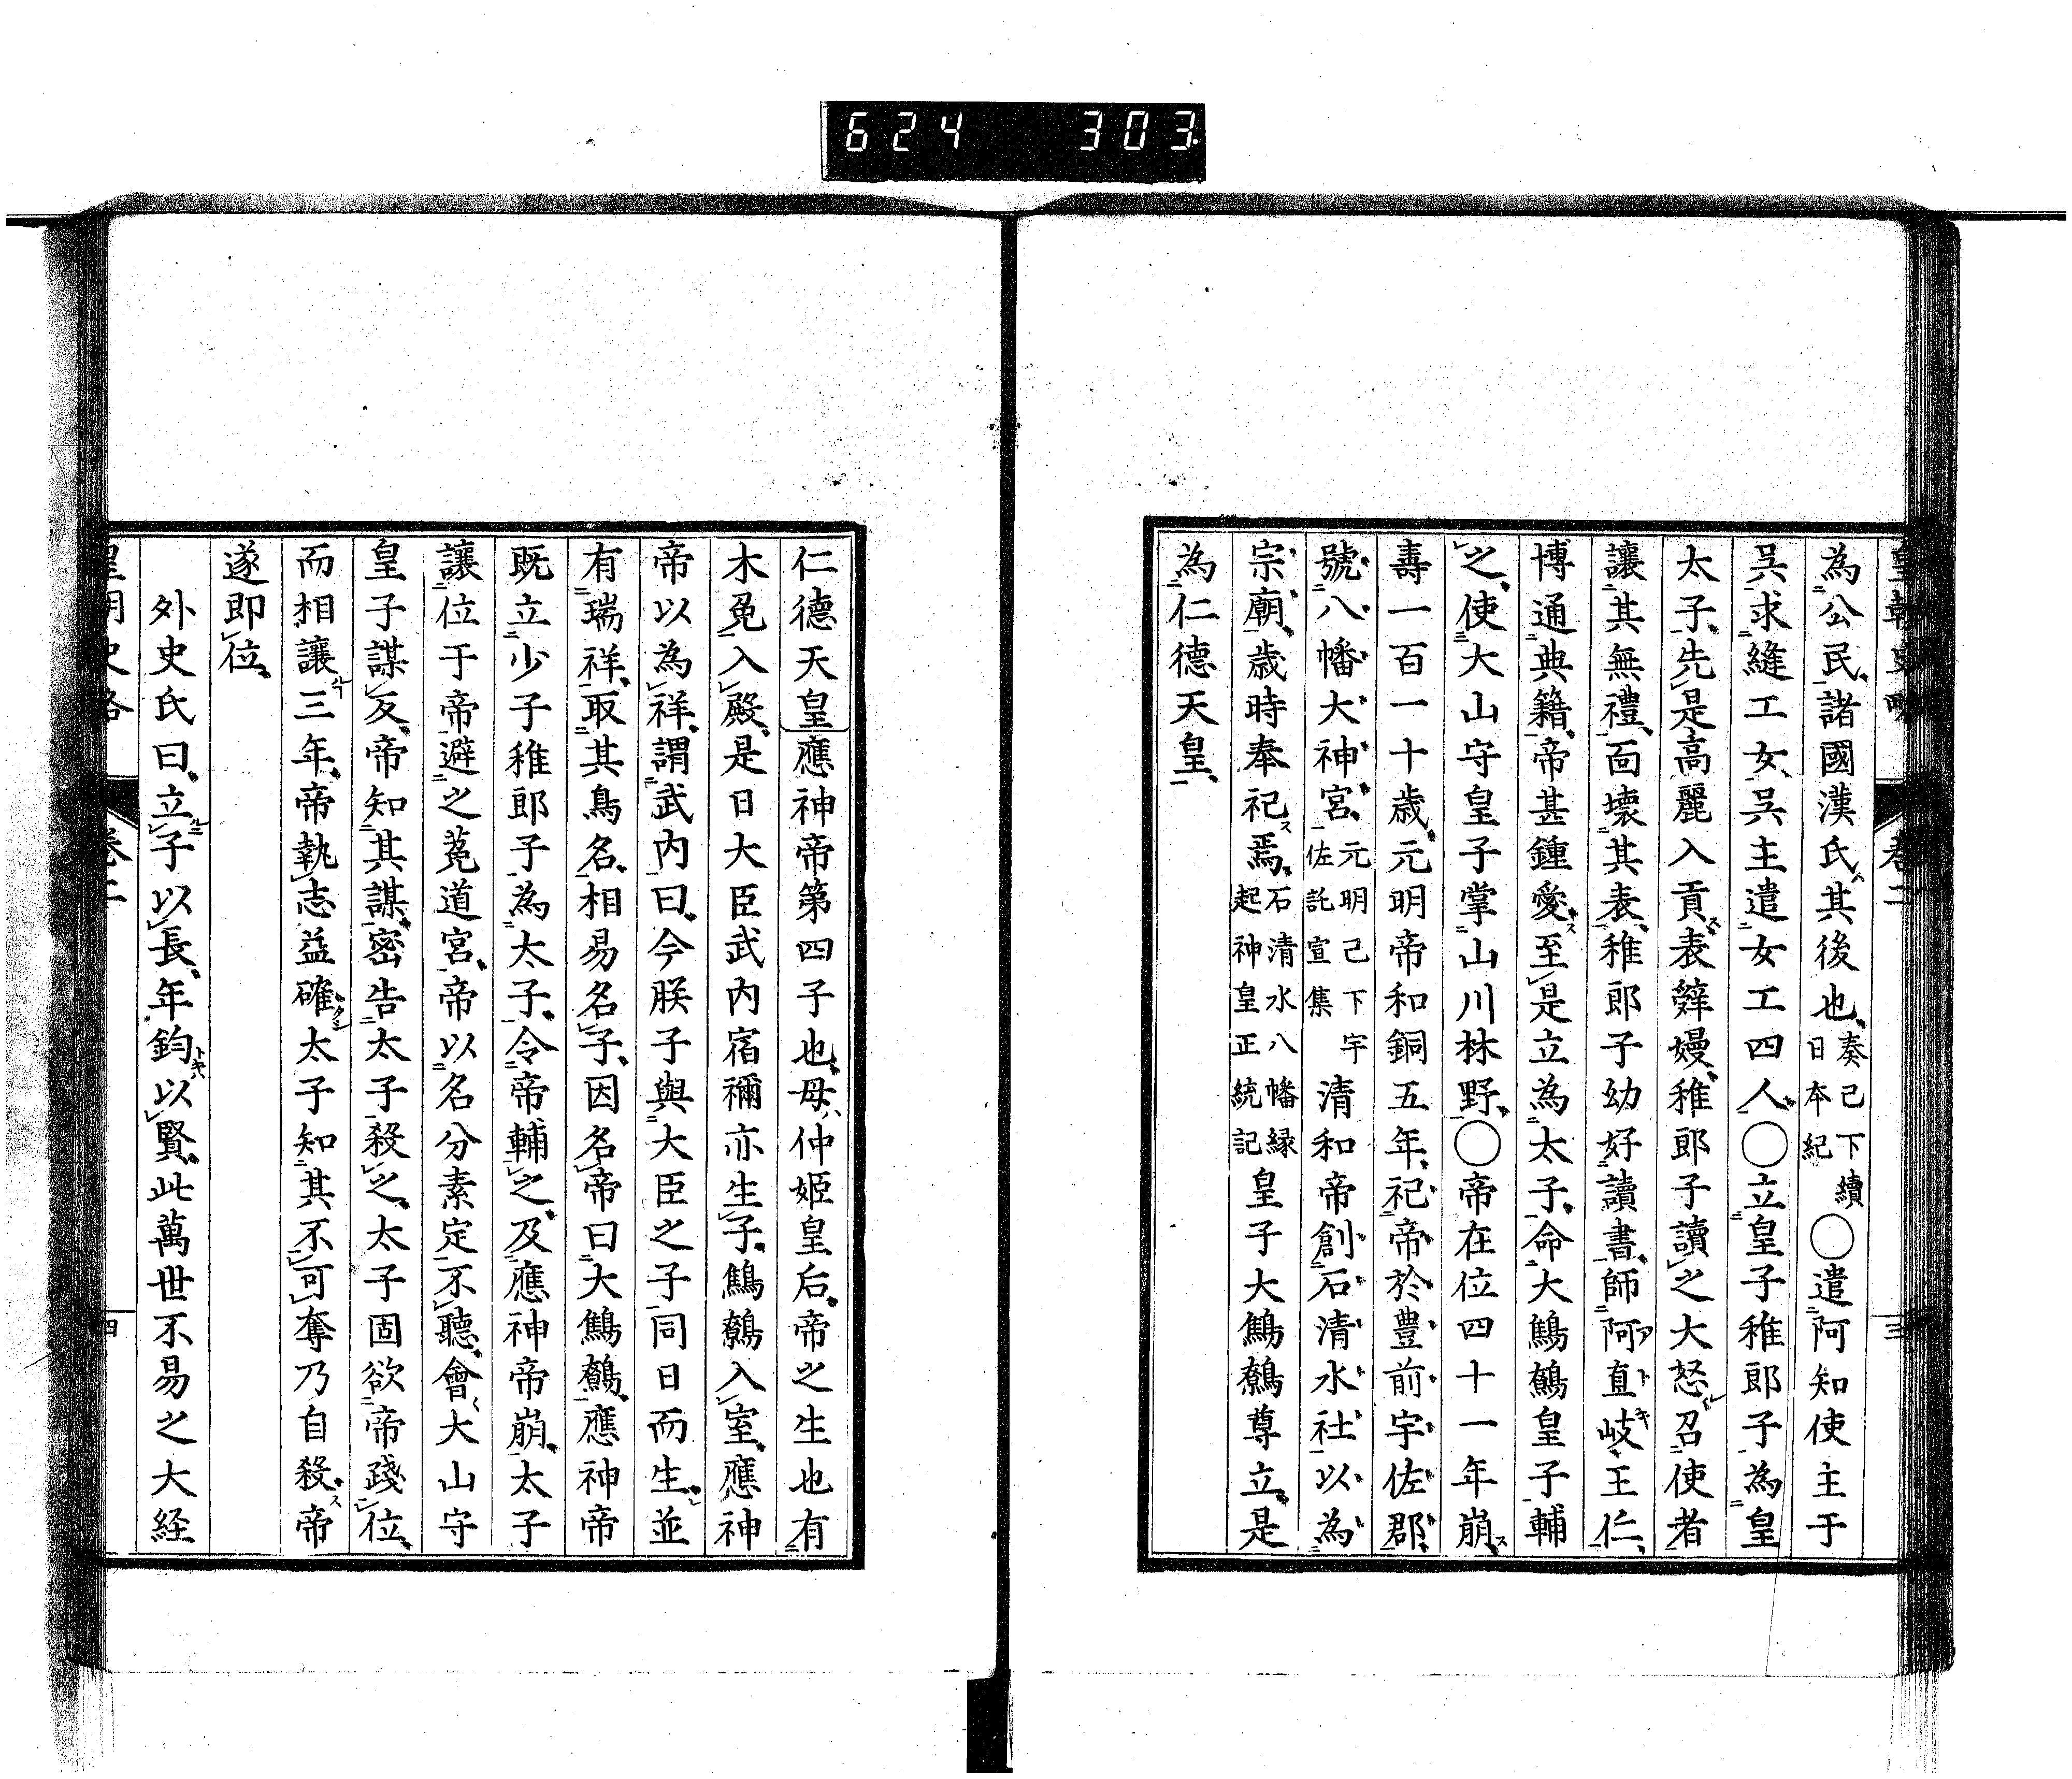 624 303
皇朝史略 卷二 三
為公民、諸國漢氏其後也、奏己下續日本紀〇遣阿知使主于
吳求縫工女、吳主遣女工四人、〇立皇子稚郎子為皇
太子、先是高麗入貢、表辭嫚、稚郎子讀之大怒、召使者
讓其無禮、面壞其表、稚郎子幼好讀書、師阿直岐、王仁、
博通典籍、帝甚鍾愛、至是立為太子、命大鷦鷯皇子輔
之、使大山守皇子掌山川林野、〇帝在位四十一年崩、
壽一百一十歲、元明帝和銅五年、祀帝於豊前宇佐郡、
號八幡大神宮、元明己下宇佐託宣集清和帝創石清水社以為
宗廟、歲時奉祀焉、石清水八幡緣起神皇正統記皇子大鷦鷯尊立、是
為仁德天皇、
仁德天皇應神帝第四子也、母仲姬皇后、帝之生也有
木兔入殿、是日大臣武內宿禰亦生子、鷦鷯入室、應神
帝以為祥、謂武內曰、今朕子與大臣之子同日而生、並
有瑞祥、取其鳥名、相易名子、因名帝曰大鷦鷯、應神帝
既立少子稚郎子為太子、令帝輔之、及應神帝崩、太子
讓位于帝、避之菟道宮、帝以名分素定不聽、會大山守
皇子謀反、帝知其謀、密告太子殺之、太子固欲帝踐位、
而相讓三年、帝執志益確、太子知其不可奪乃自殺、帝
遂即位、
外史氏曰、立子以長、年鈞以賢、此萬世不易之大経
皇朝史略 卷二 四